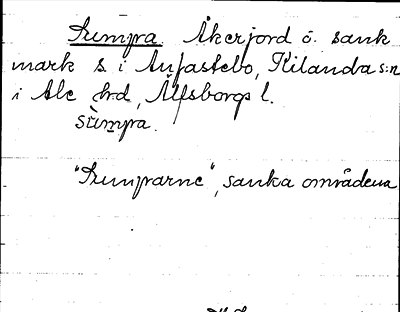 Sumpra. Åkerjord o. sank
mark s. i Anfastebo, Kilanda s:n
i Ale hd, Älfsborgs l.
sùmpra.
"Sumprarne", sanka områdena